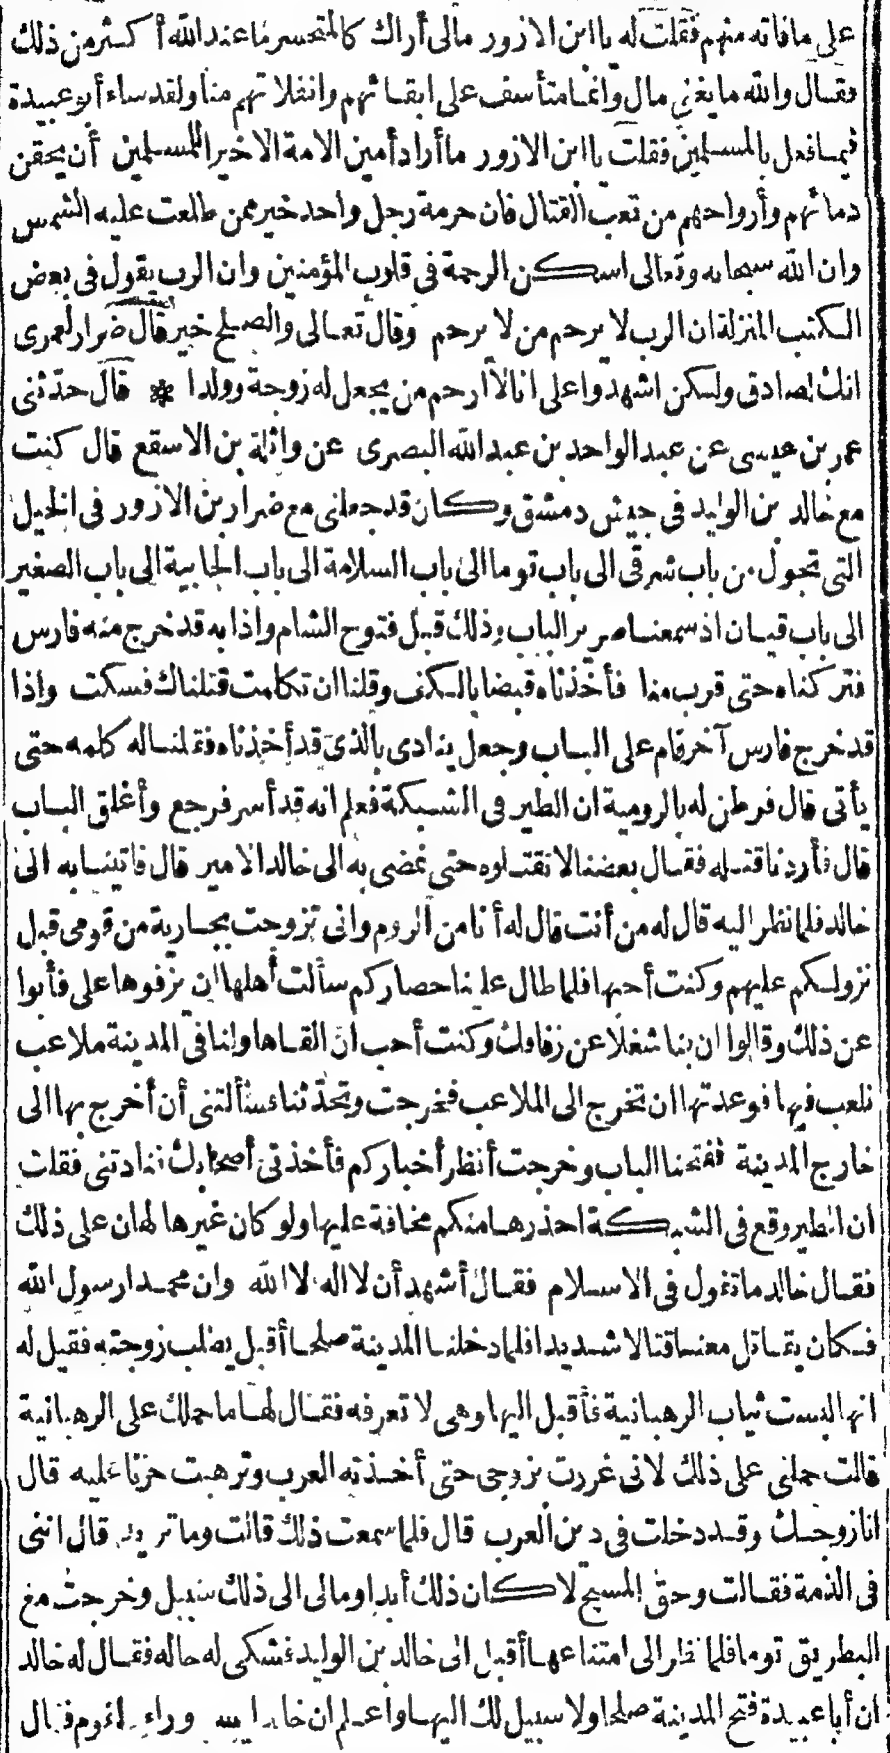 على مافاته منهم فقلت له يا ابن الازور مالى أراك كالمتحسر ما عند الله أكثر من ذلك
فقال والله ما يغنى مال وانما متأسف على ابقائهم وانفلاتهم منا ولقد ساء أبو عبيدة
فيما فعل بالمسلمين فقلت يا ابن الازور ما أراد أمين الامة الا خير اللمسلمين أن يحقن
دمائهم وأرواحهم من تعب القتال فان حرمة رجل واحد خير ممن طلعت عليه الشمس
وان الله سبحانه وتعالى اسكن الرحمة فى قلوب المؤمنين وان الرب يقول فى بعض
الكتب المنزلة ان الرب لا يرحم من لا يرحم وقال تعالى والصلح خير فقال ضرار لعمرى
انك لصادق ولكن اشهدوا على انا لا أرحم من يجعل له زوجة وولدا * قال حدثنى
عمر بن عيسى عن عبد الواحد بن عبد الله البصرى عن واثلة بن الاسقع قال كنت
مع خالد بن الوليد فى جيش دمشق وكان قد جعلنى مع ضرار بن الازور فى الخيل
التى تجول من باب شرقى الى باب توما الى باب السلامة الى باب الجابية الى باب الصغير
الى باب قيسان اذ سمعنا صرير الباب وذلك قبل فتوح الشام واذا به قد خرج منه فارس
فتركناه حتى قرب منا فأخذناه قبضا بالكف وقلنا ان تكلمت قتلناك فسكت واذا
قد خرج فارس آخر قام على الباب وجعل ينادى بالذى قد أخذناه فقلنا له كلمه حتى
يأتى قال فرطن له بالرومية ان الطير فى الشبكة فعلم انه قد أسر فرجع وأغلق الباب
قال فأردنا قتله فقال بعضنا لا نقتلوه حتى نمضى به الى خالد الامير قال فاتينا به الى
خالد فلما نظر اليه قال له من أنت قال له أنا من الروم وانى تزوجت بجارية من قومى قبل
نزولكم عليهم وكنت أحبها فلما طال علينا حصاركم سألت أهلها ان يزفوها على فأبوا
عن ذلك وقالوا ان بنا شغلا عن زفافك وكنت أحب ان القاها ولنا فى المدينة ملاعب
نلعب فيها فوعدتها ان تخرج الى الملاعب فخرجت وتحدثنا فسألتنى أن أخرج بها الى
خارج المدينة ففتحنا الباب وخرجت أنظر أخباركم فأخذنى أصحابك فنادتنى فقلت
ان الطير وقع فى الشبكة احذرها منكم مخافة عليها ولو كان غيرها لهان على ذلك
فقال خالد ما تقول فى الاسلام فقال أشهد أن لا اله الا الله وان محمدا رسول الله
فكان يقاتل معنا قتالا شديدا فلما دخلنا المدينة صلحا أقبل يطلب زوجته فقيل له
انها لبست ثياب الرهبانية فأقبل اليها وهى لا تعرفه فقال لها ما حملك على الرهبانية
قالت حملنى على ذلك لانى غررت بزوجى حتى أخذته العرب وترهبت حزنا عليه قال
انا زوجك وقد دخلت فى دين العرب قال فلما سمعت ذلك قالت وما تريد قال اننى
فى الذمة فقالت وحق المسيح لا كان ذلك أبدا ومالى الى ذلك سبيل وخرجت مع
البطريق توما فلما نظر الى امتناعها أقبل الى خالد بن الوليد فشكى له حاله فقال له خالد
ان أبا عبيدة فتح المدينة صلحا ولا سبيل لك اليها واعلم ان خالدا وراء القوم فقال